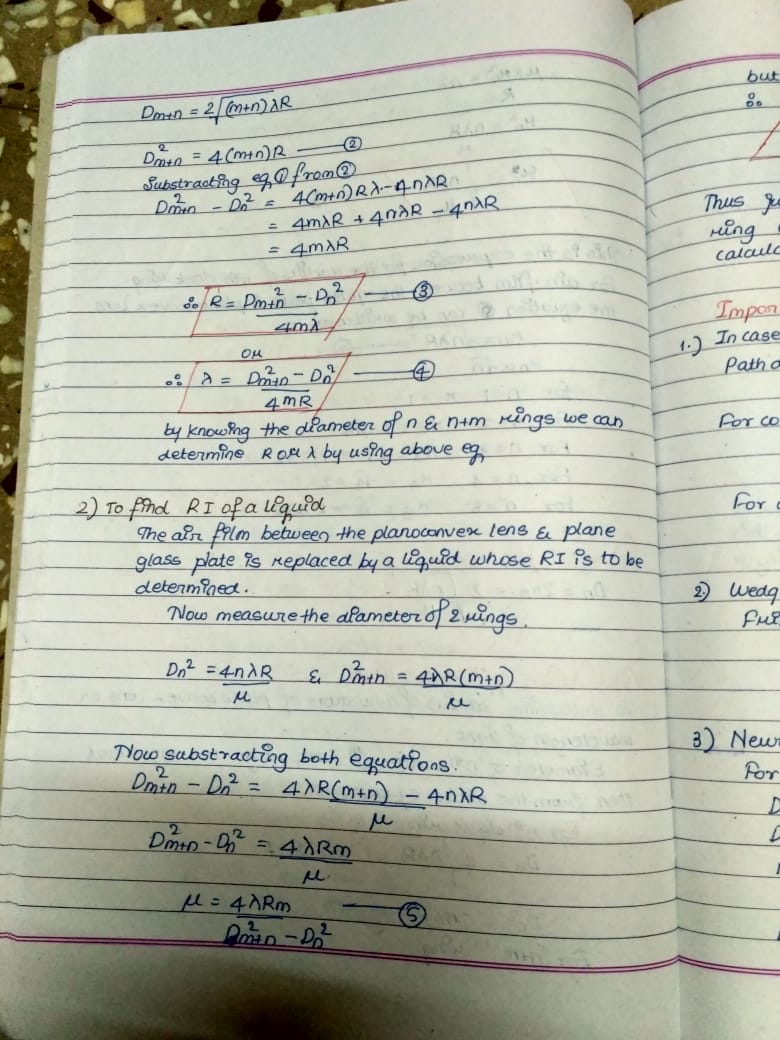 Dm+n = 2√(m+n)λR
D²m+n = 4(m+n)R —— ②
Substracting eq ① from ②
D²m+n - Dn² = 4(m+n)Rλ - 4nλR
= 4mλR + 4nλR - 4nλR
= 4mλR
∴ R = D²m+n - Dn² / 4mλ —— ③
OR
∴ λ = D²m+n - Dn² / 4mR —— ④
by knowing the diameter of n & n+m rings we can
determine R or λ by using above eq
2) To find RI of a liquid
The air film between the planoconvex lens & plane
glass plate is replaced by a liquid whose RI is to be
determined.
Now measure the diameter of 2 rings.
Dn² = 4nλR / μ & D²m+n = 4λR(m+n) / μ
Now substracting both equations.
D²m+n - Dn² = 4λR(m+n) - 4nλR / μ
D²m+n - Dn² = 4λRm / μ
μ = 4λRm / D²m+n - Dn² —— ⑤
but
∴
Thus
ring
Impor
1.) In case
Path
For co
For
2.) Wedg
3) New
For